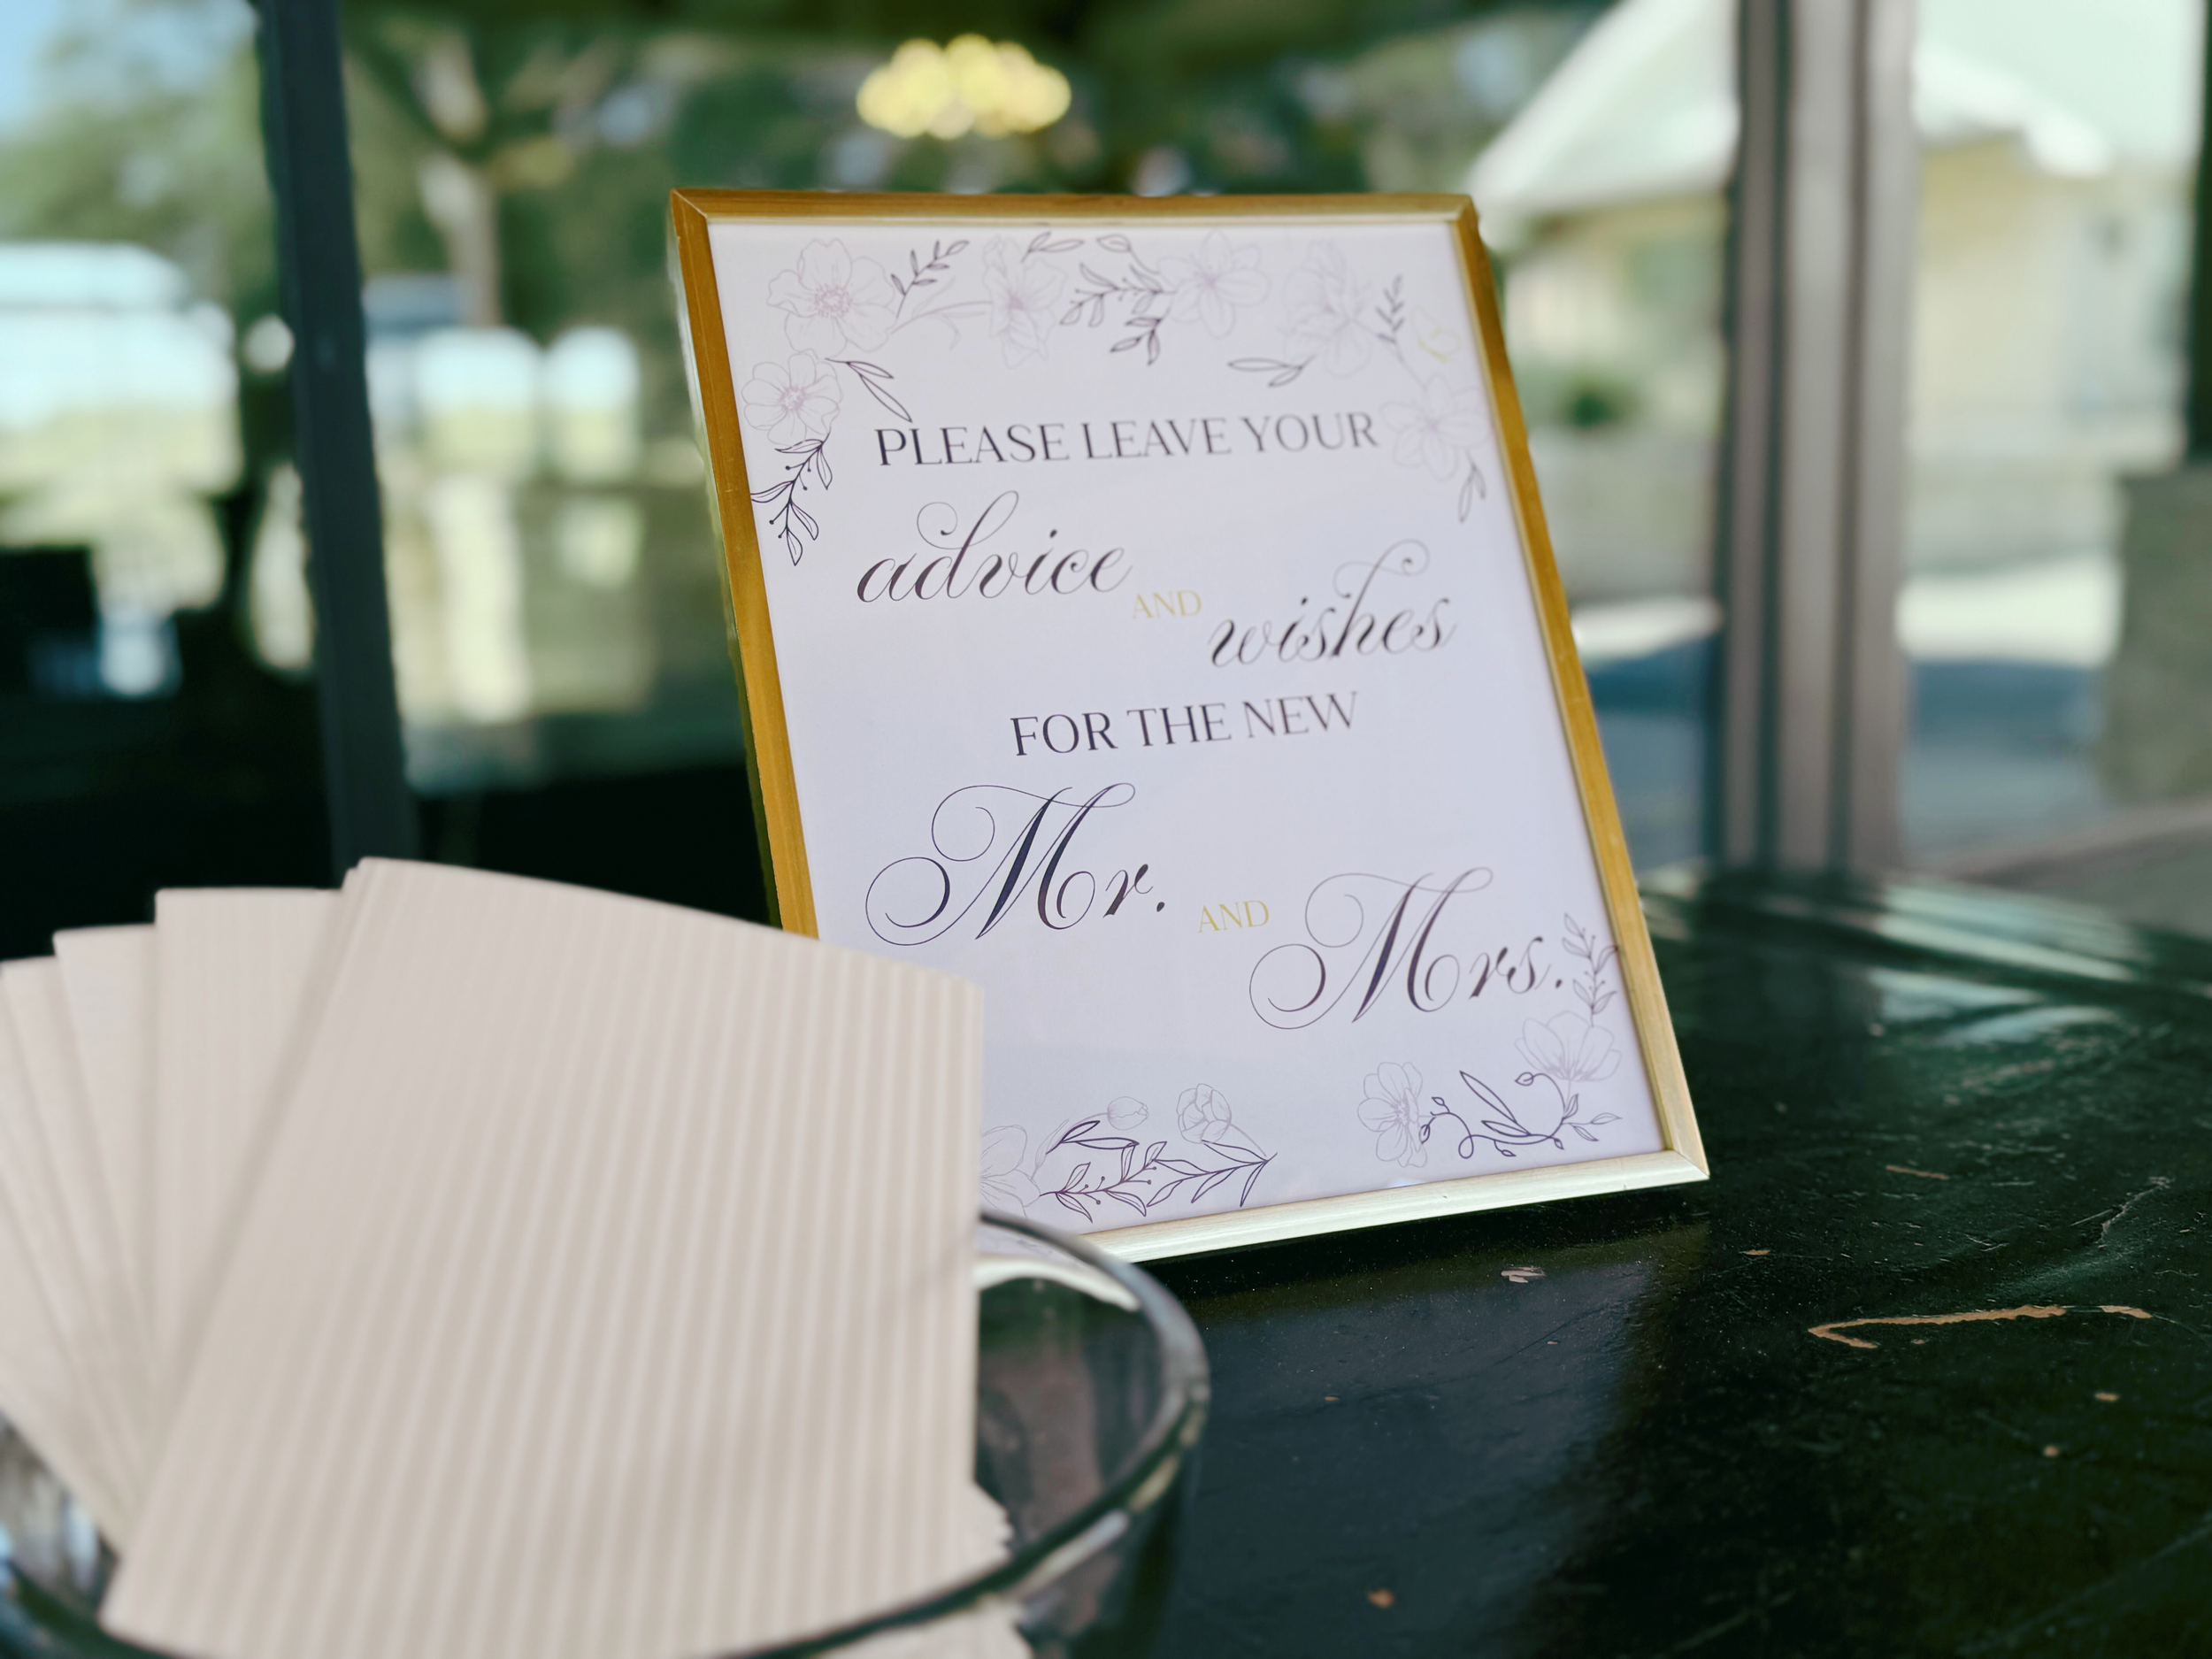 PLEASE LEAVE YOUR
advice AND wishes
FOR THE NEW
Mr. AND Mrs.